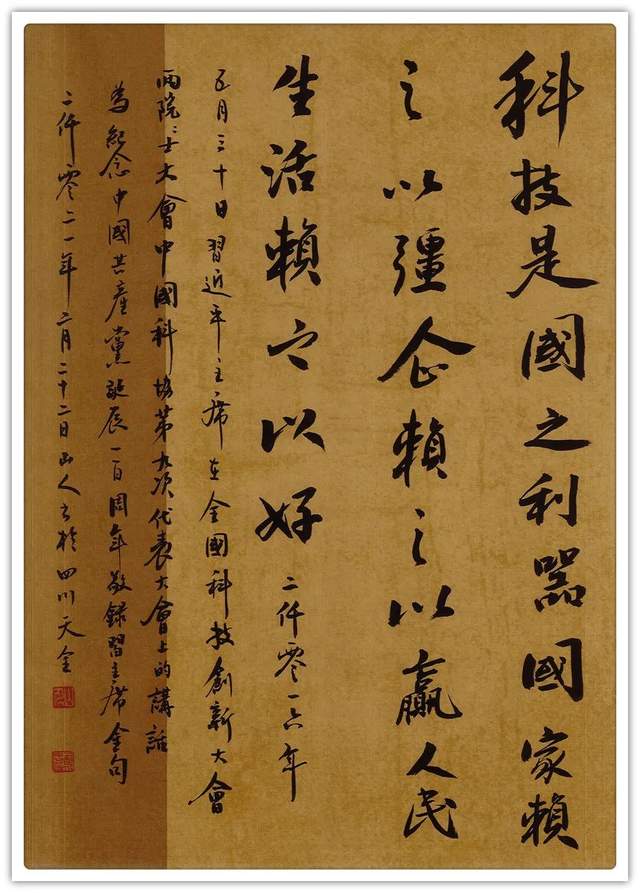 科技是國之利器國家賴
之以彊企賴之以贏人民
生活賴之以好 二仟零一六年
五月三十日習近平主席在全國科技創新大會
兩院〻士大會中國科協第九次代表大會上的講話
為紀念中國共產黨誕辰一百周年敬録習主席金句
二仟零二一年二月二十二日山人書於四川天全